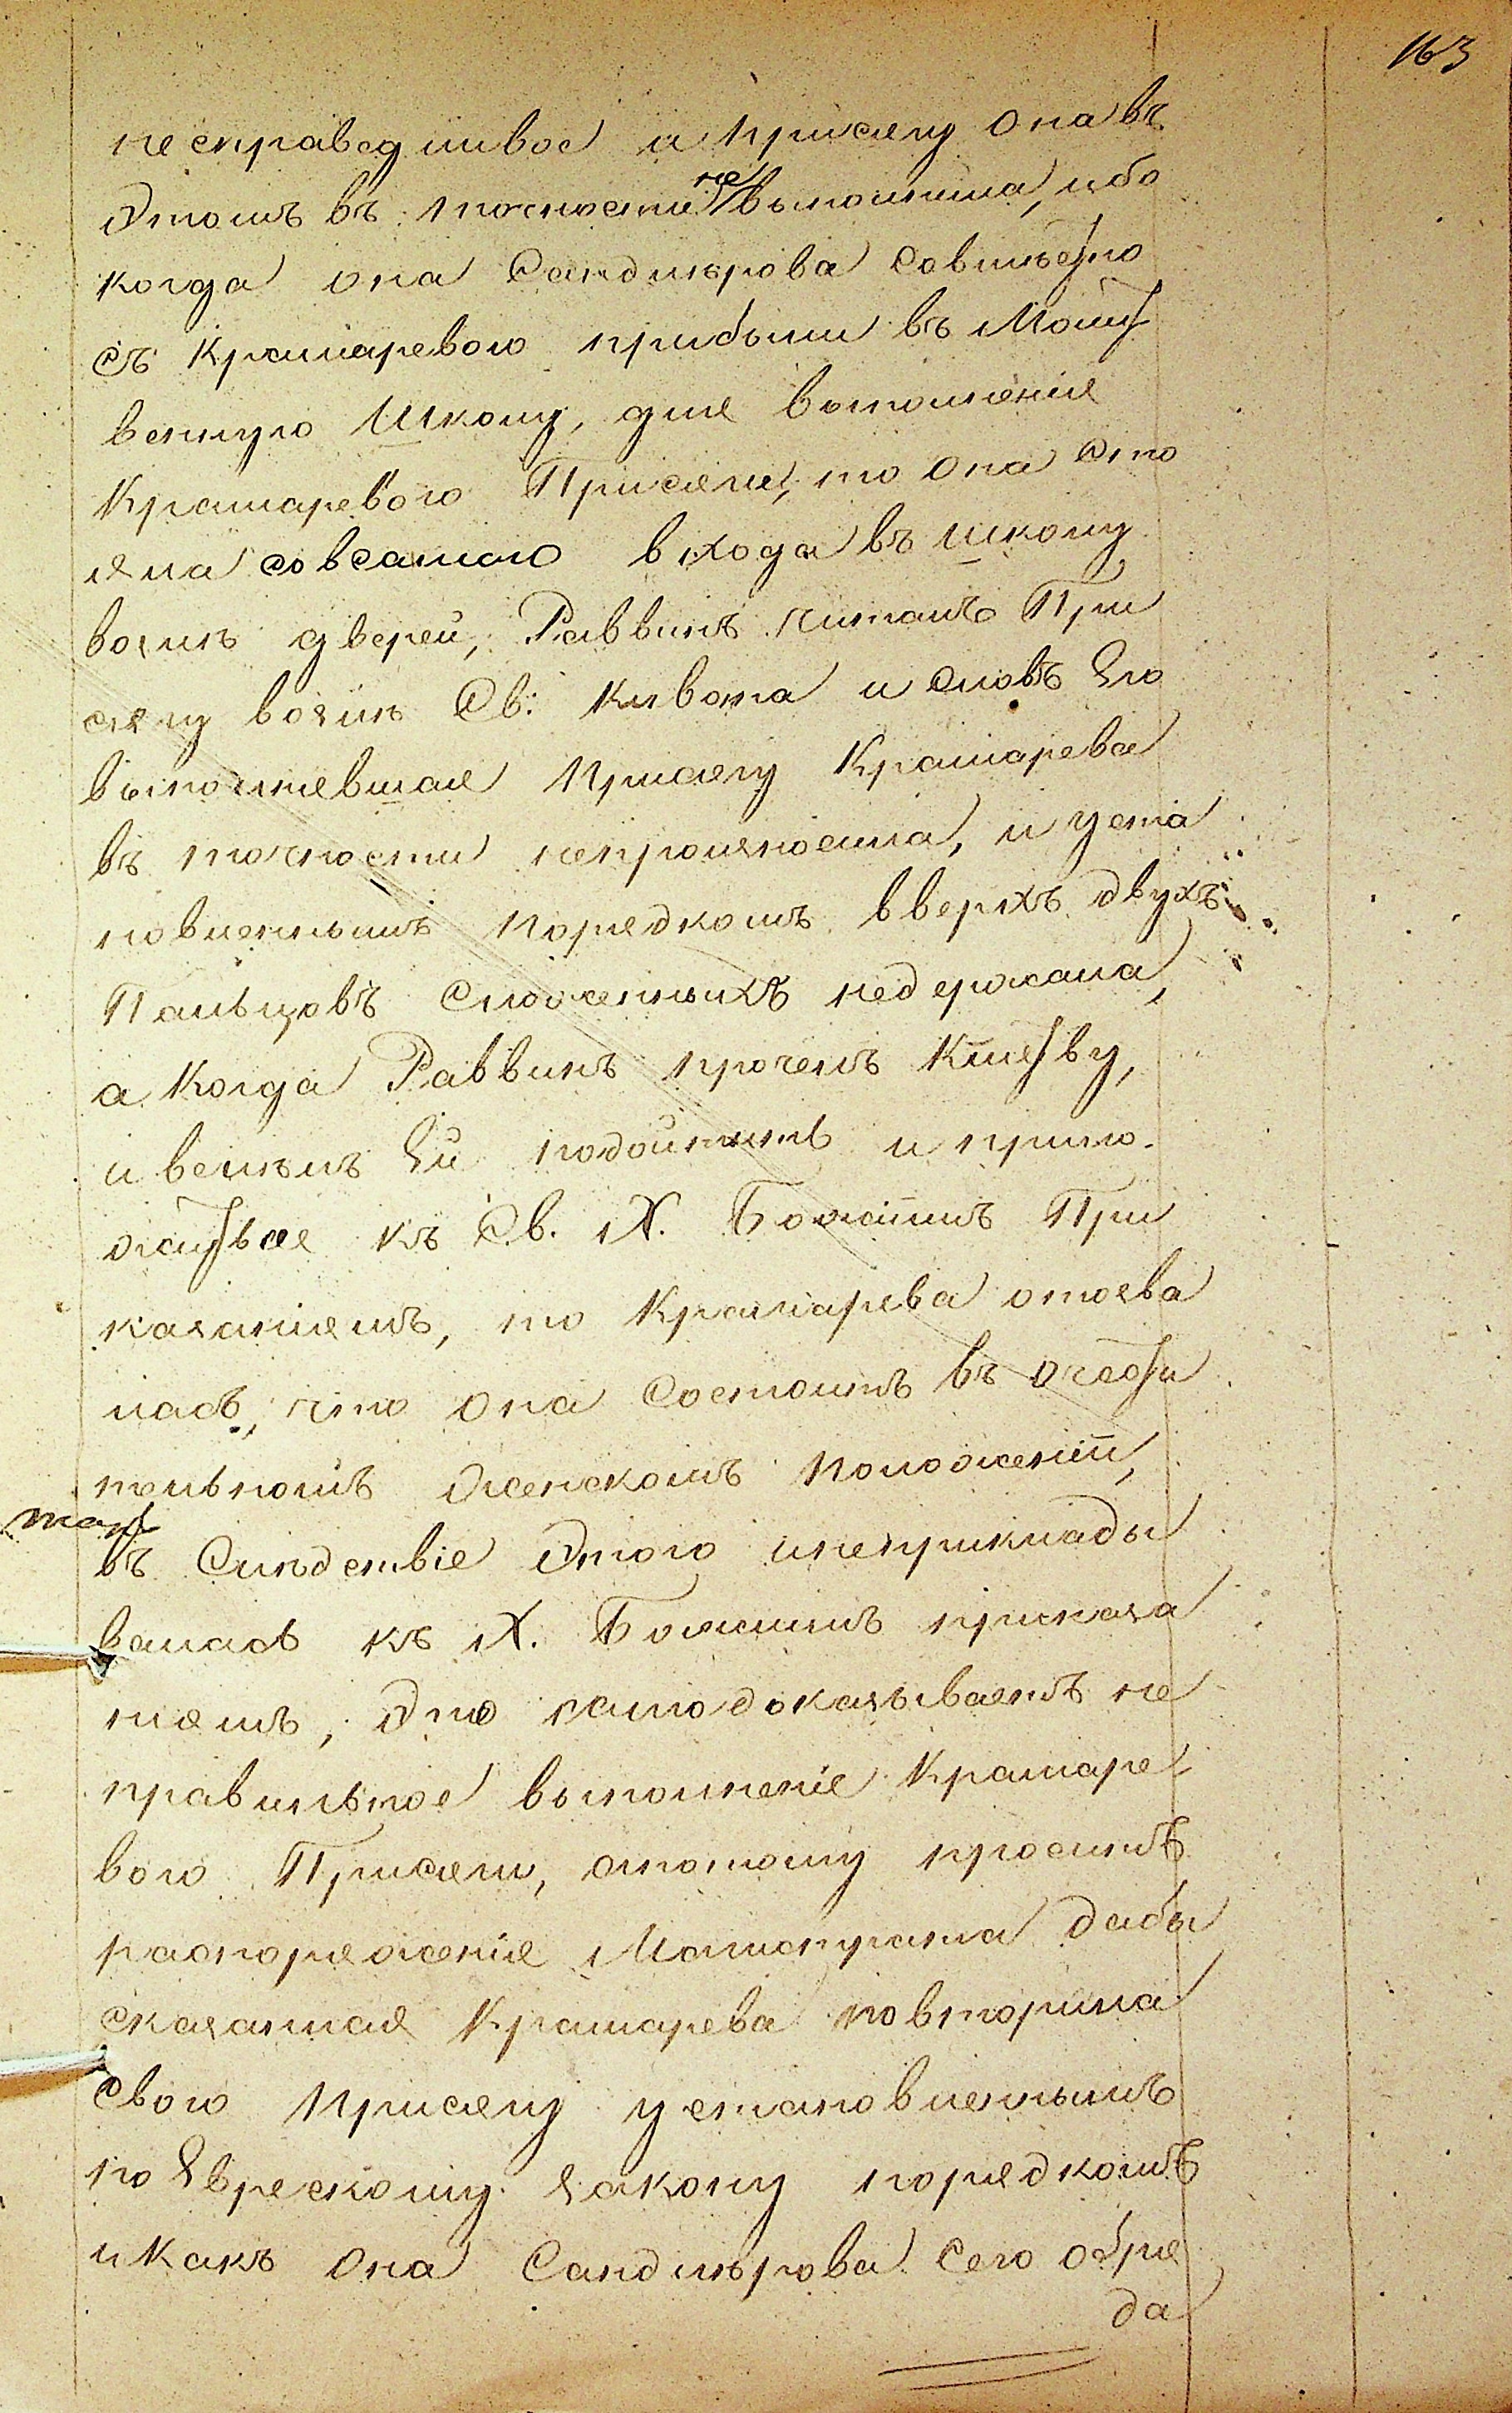 163
несправедливое и присягу она въ
Этомъ въ точности не выполнила, ибо
когда она Сандлерова совместно
съ Крамаревою прибыли въ Молит
венную Школу, для выполнения
Крамаревою Присяги, то она Сто
яла совсамаго входа въ школу
возлѣ дверей, Раввинъ читалъ При
сягу возлѣ Св: Кивота и словъ Его
выполнявшая присягу Крамарева
въ точности непроизносила, и уста
новленнымъ порядкомъ вверхъ двухъ
Пальцовъ Сложенныхъ недержала,
а Когда Раввинъ прочелъ Клятву,
и велѣлъ Ей подойтить и прило
житься къ Св. Х. Божіимъ При
казаніемъ, то Крамарева отозва
лась, что она Состоитъ въ очисти
тельномъ женскомъ положеніи,
въ Слѣдствіе Этого инеприклады
валась къ Х. Божіимъ приказа
ніямъ, Это само доказываетъ не
правильное выполненіе Крамаре
вою Присяги, отпотому проситъ
распоряженіе Магистрата дабы
сказанная Крамарева повторила
свою присягу установленнымъ
по Еврейскому закону порядкомъ
и Какъ Она Сандлерова сего обря
да